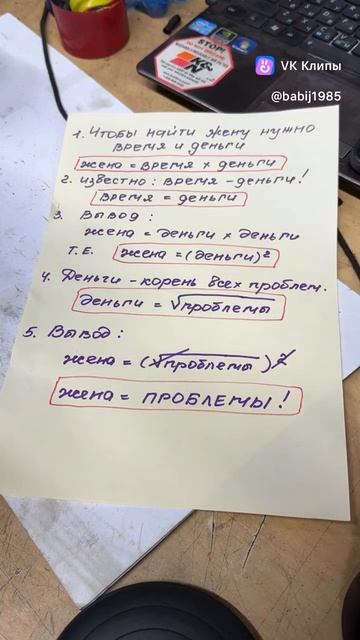 VK Клипы
@babij1985
STOP!
K&N
1. Чтобы найти жену нужно
время и деньги
жена = время x деньги
2. известно: время - деньги!
время = деньги
3. Вывод:
жена = деньги x деньги
т.е. жена = (деньги)²
4. Деньги - корень всех проблем.
деньги = √проблемы
5. Вывод:
жена = (√проблемы)²
жена = ПРОБЛЕМЫ!